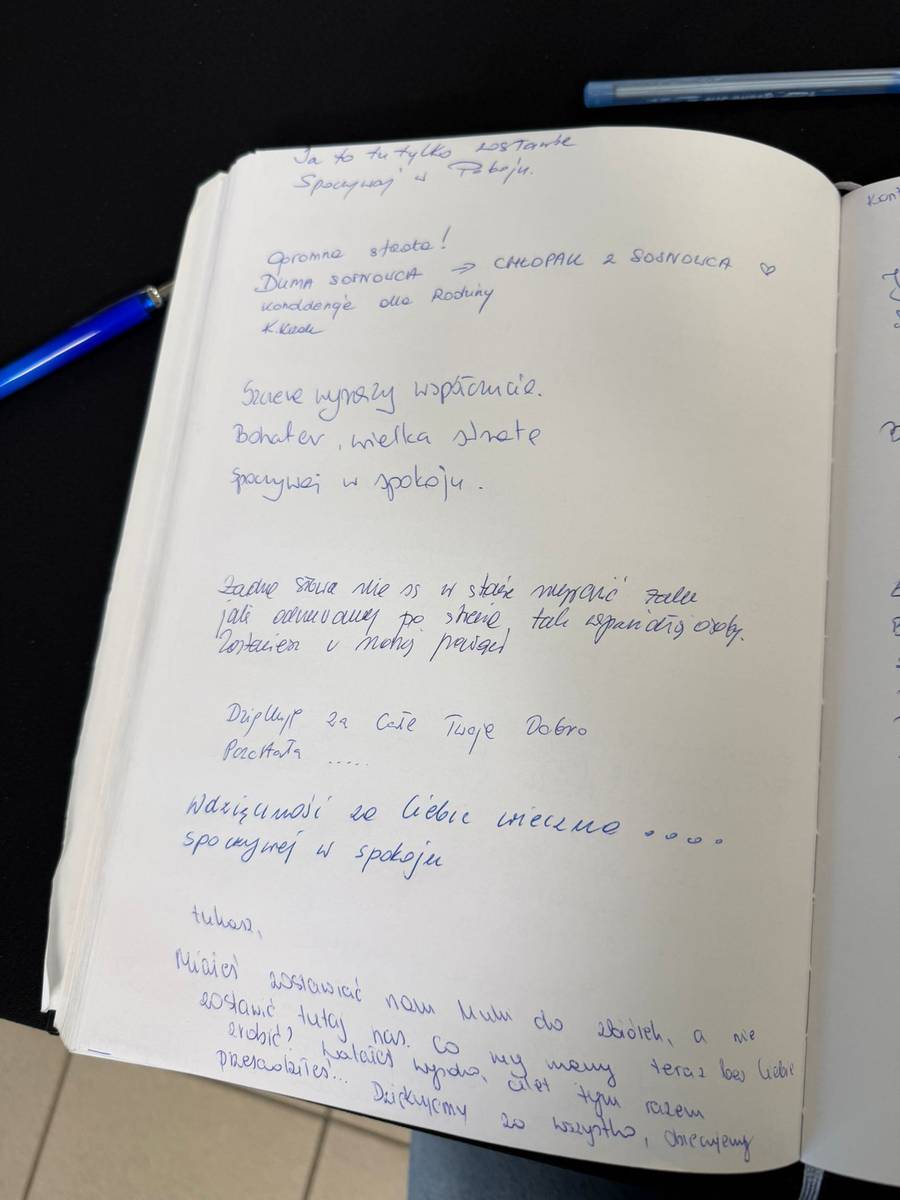 Ja to tu tylko zostawie
Spoczywaj w Pokoju.
Ogromna strata!
DUMA SOSNOWCA => CHŁOPAK Z SOSNOWCA ♡
kondolencje dla Rodziny
K.
Szczere wyrazy współczucia.
Bohater, wielka strata
Spoczywaj w spokoju.
Żadne słowa nie są w stanie żalu
jaki po stracie tak wspaniałej osoby.
Zostaniesz w naszej pamięci
Dziękuję za Całe Twoje Dobro
Pozostała .....
Wdzięczność za Ciebie wieczna ....
spoczywaj w spokoju
Łukasz,
Miałeś zostawiać nam do zbiórek, a nie
zostawić tutaj nas. Co my mamy teraz bez Ciebie
zrobić? Latałeś wysoko, ale tym razem
przesadziłeś... Dziękujemy za wszystko, obiecujemy